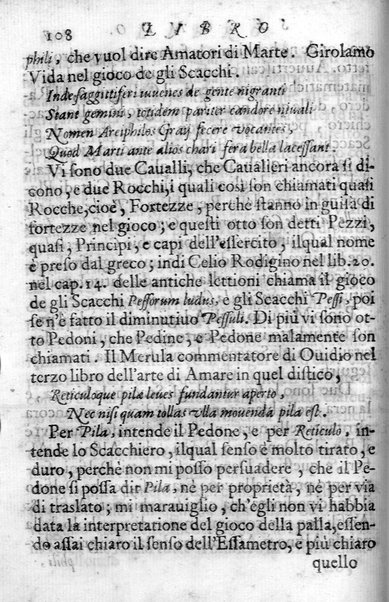 108 LIBRO
phili, che vuol dire Amatori di Marte. Girolamo
Vida nel gioco de gli Scacchi.
Inde sagittiferi iuuenes de gente nigranti
Stant gemini, totidem pariter candore niuali
Nomen Areiphilos Graÿ fecere vocantes,
Quod Marti ante alios chari fera bella lacessant.
Vi sono due Caualli, che Caualieri ancora si di-
cono, e due Rocchi, i quali cosi son chiamati quasi
Rocche, cioè, Fortezze, perche stanno in guisa di
fortezze nel gioco; e questi otto son detti Pezzi,
quasi, Principi, e capi dell'essercito, ilqual nome
è preso dal greco; indi Celio Rodigino nel lib. 20.
nel cap. 14. delle antiche lettioni chiama il gioco
de gli Scacchi Pessorum ludus, e gli Scacchi Pessi, poi
se n'è fatto il diminutiuo Pessuli. Di più vi sono ot-
to Pedoni, che Pedine, e Pedone malamente son
chiamati. Il Merula commentatore di Ouidio nel
terzo libro dell'arte di Amare in quel distico,
Reticuloque pila leues fundantur aperto,
Nec nisi quam tollas vlla mouenda pila est.
Per Pila, intende il Pedone, e per Reticulo, in-
tende lo Scacchiero, ilqual senso è molto tirato, e
duro, perche non mi posso persuadere, che il Pe-
done si possa dir Pila, nè per proprietà, nè per via
di traslato; mi marauiglio, ch'egli non vi habbia
data la interpretatione del gioco della palla, essen-
do assai chiaro il senso dell'Essametro, e più chiaro
quello